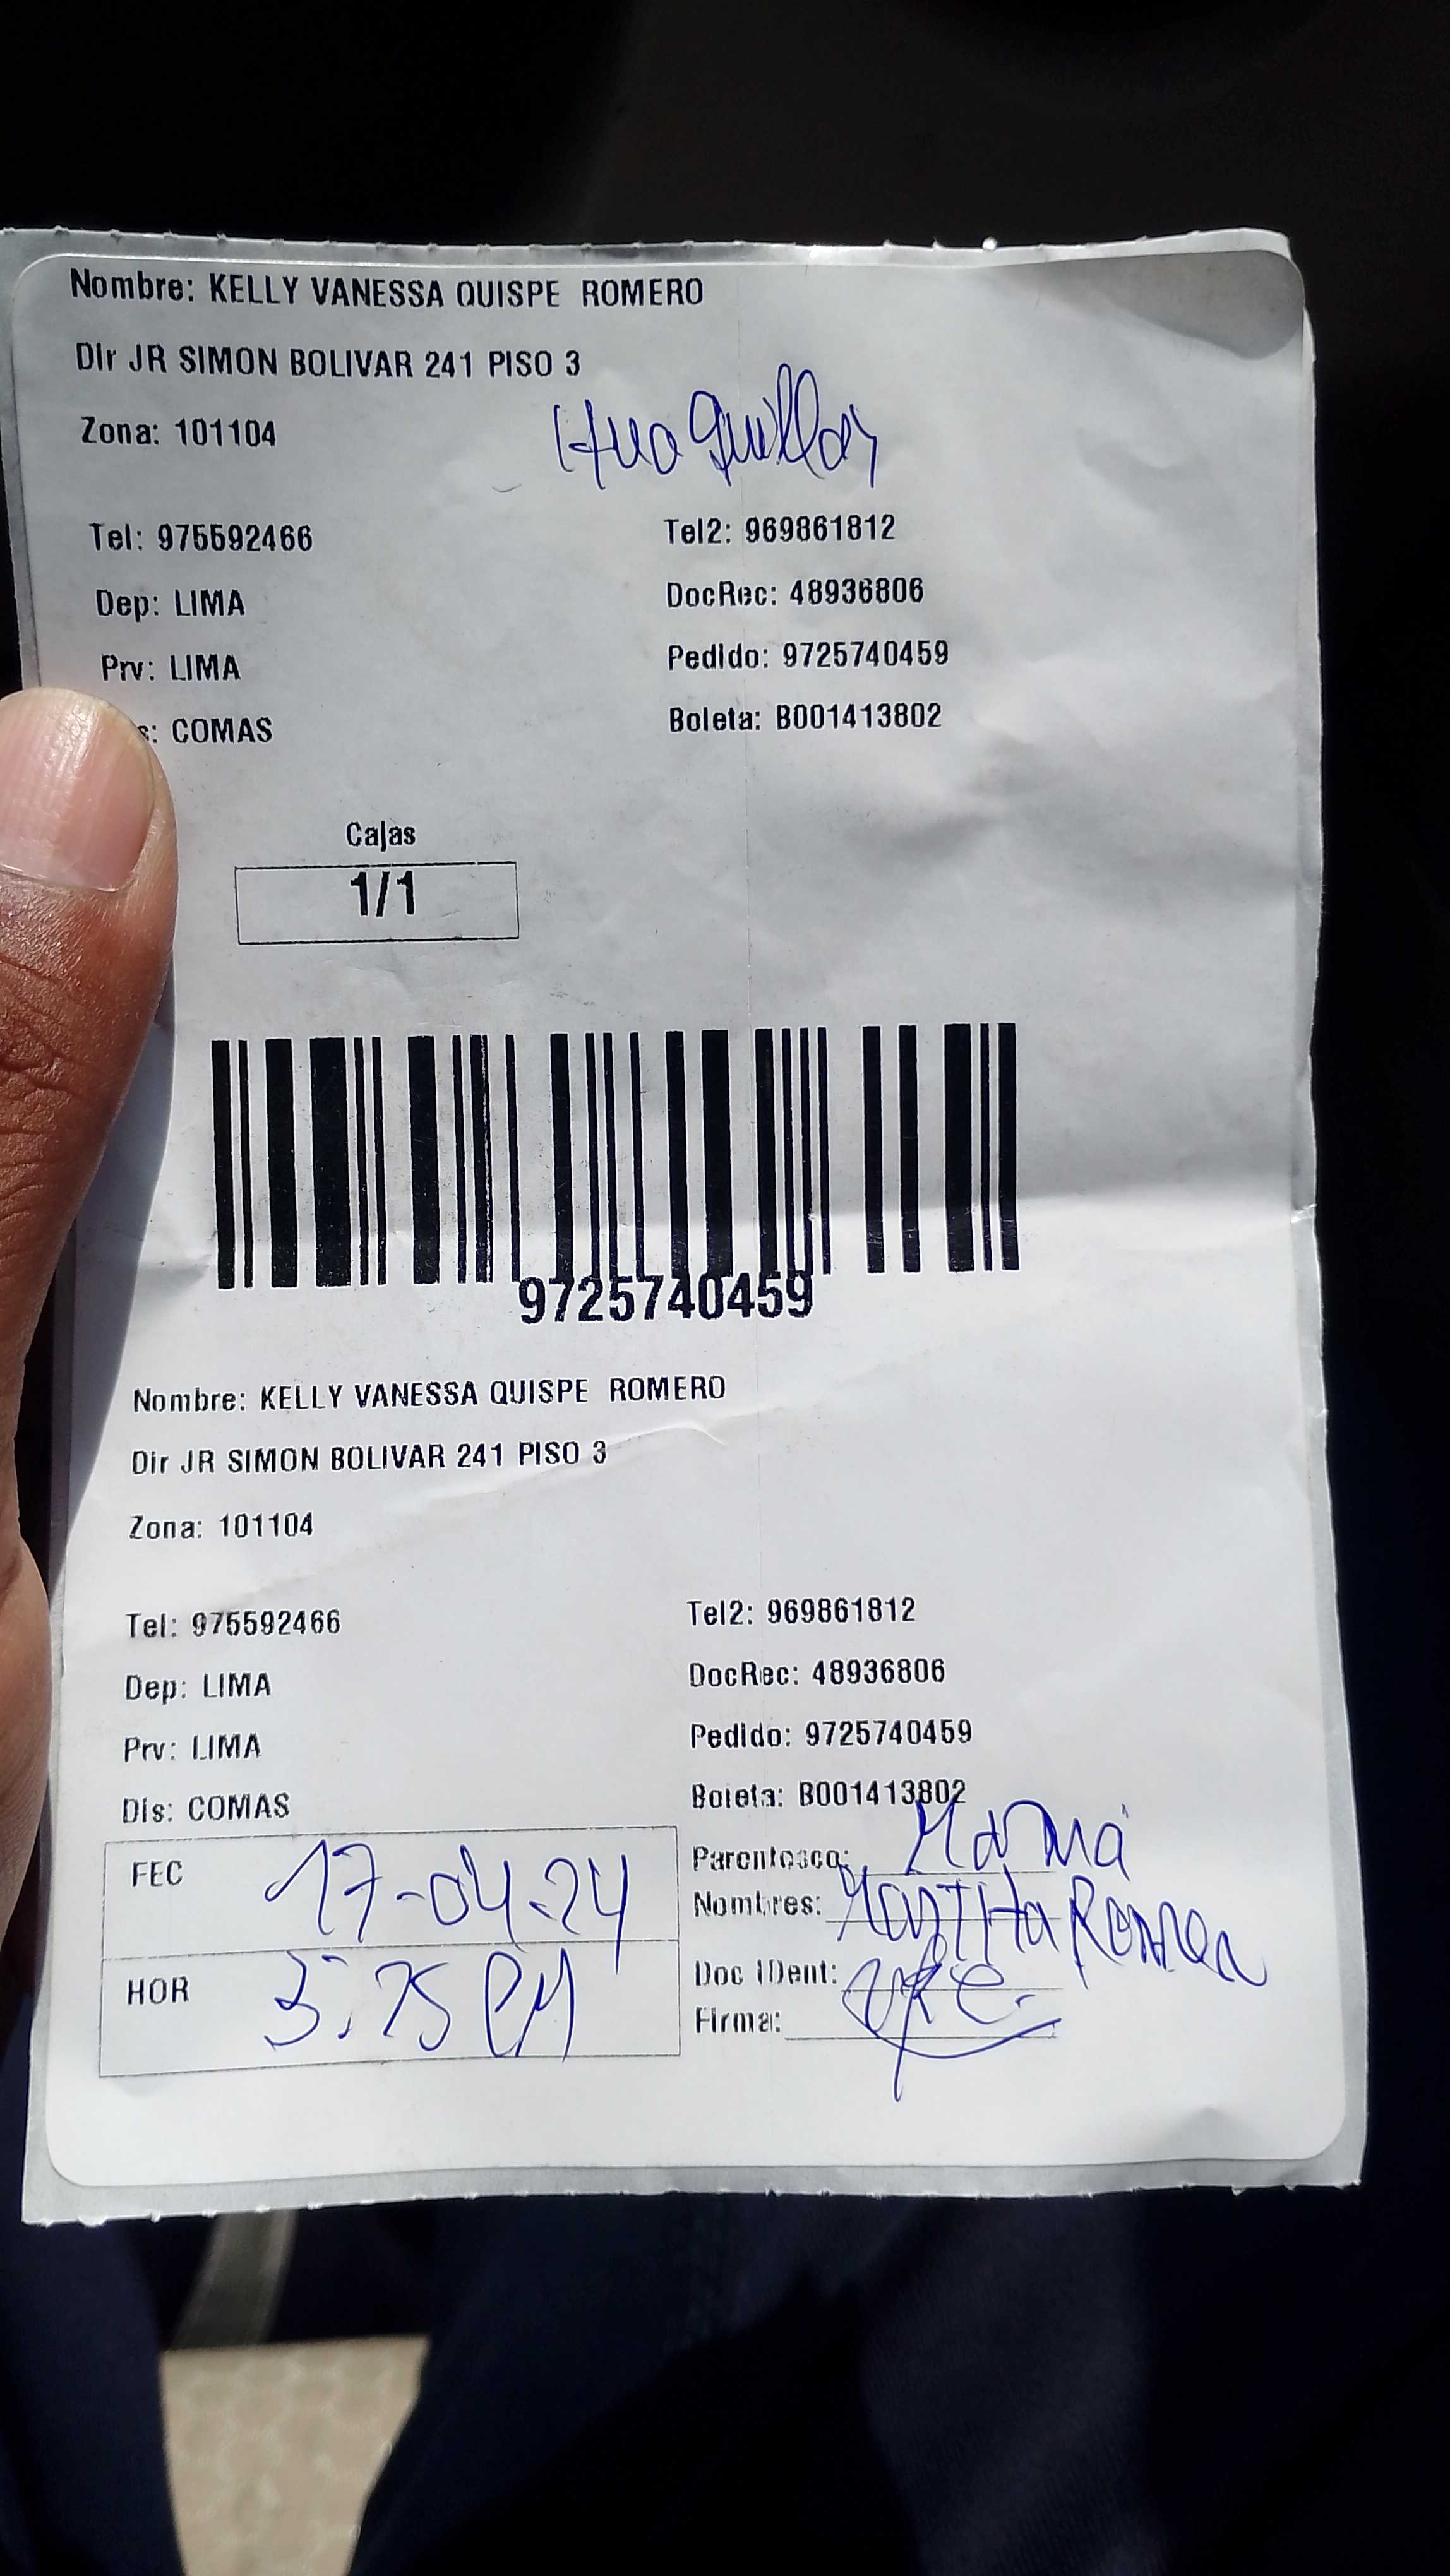 Nombre: KELLY VANESSA QUISPE ROMERO
Dir JR SIMON BOLIVAR 241 PISO 3
Zona: 101104
Huaquillay
Tel: 975592466 Tel2: 969861812
Dep: LIMA DocRec: 48936806
Prv: LIMA Pedido: 9725740459
s: COMAS Boleta: B001413802
Cajas
1/1
9725740459
Nombre: KELLY VANESSA QUISPE ROMERO
Dir JR SIMON BOLIVAR 241 PISO 3
Zona: 101104
Tel: 975592466 Tel2: 969861812
Dep: LIMA DocRec: 48936806
Prv: LIMA Pedido: 9725740459
Dis: COMAS Boleta: B001413802
FEC 17-04-24 Parentesco: Mamá
Nombres: Martha Romero
HOR PM Doc IDent:
Firma: